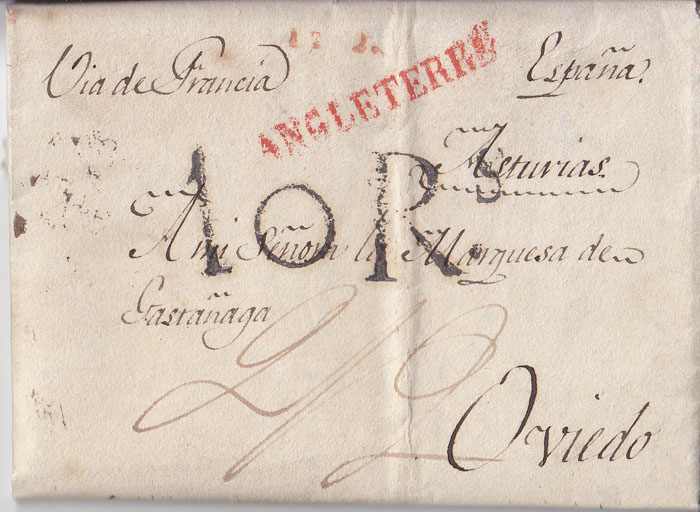 Via de Francia
España.
ANGLETERRE
Asturias.
10 Rs
A mi Señora la Marquesa de
Gastañaga
2/2
Oviedo